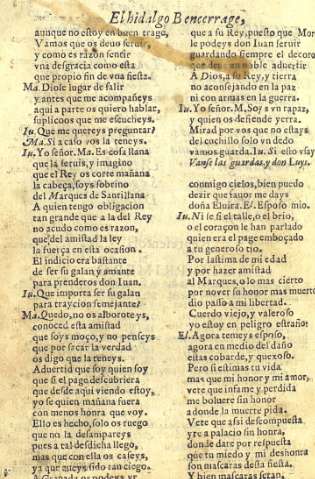 El hidalgo Bencerrage,
aunque no estoy en buen trage,
Vamos que os deuo seruir,
y como es razon sentir
vna desgracia como esta
que propio fin de vna fiesta.
Ma. Diole lugar de salir
y antes que me acompañeys
aqui a parte os quiero hablar,
suplicoos que me escucheys.
Iu. Que me quereys preguntar?
Ma. Si a caso vos la teneys.
Iu. Yo señor. Ma. Es cosa llana
que la seruis, y imagino
que el Rey os corte mañana
la cabeça, soys sobrino
del Marques de Santillana
A quien tengo obligacion
tan grande que a la del Rey
no acudo como es razon,
que del amistad la ley
la fuerça en esta ocasion.
El indicio era bastante
de ser su galan y amante
para prenderos don Iuan.
Iu. Que importa ser su galan
para traycion semejante?
Ma. Quedo, no os alboroteys,
conoced esta amistad
que soys moço, y no penseys
que por sacar la verdad
os digo que la teneys.
Aduertid que soy quien soy
que si el page descubriera
que desde aqui viendo estoy,
yo se quien mañana fuera
con menos honra que voy.
Ello es hecho, solo os ruego
que no la desampareys
pues a tal desdicha llego,
mas que con ella os caseys,
ya que aueys sido tan ciego.
que a su Rey, puesto que Mor
le podeys don Iuan seruir
guardando siempre el decoro
que noble aduertir
A Dios, a su Rey, y tierra
no aconsejando en la paz
ni con armas en la guerra.
Iu. Yo señor. M. Soy a vn rapaz,
y quien os defiende yerra.
Mirad por vos que no estays
del cuchillo solo vn dedo
vamos guarda. Iu. Si esto
Vanse las guardas, y don Luys.
conmigo cielos, bien puedo
dezir que fauor me days
doña Eluira. El. Esposo mio.
Iu. Ni se si el talle, o el brio,
o el coraçon le han parlado
quien era el page emboçado
a tu generoso tio.
Por lastima de mi edad
y por hazer amistad
al Marques, o lo mas cierto
por no ver su honor mas muerto
dio passo a mi libertad.
Cuerdo viejo, y valeroso
yo estoy en peligro estraño
El. Agora temeys esposo,
agora en medio del daño
estas cobarde, y quexoso.
Pero si estimas tu vida
mas que mi honor y mi amor,
vete que infame y perdida
me boluere sin honor
a donde la muerte pida.
Vete que assi descompuesta
yre a palacio sin honra,
donde dare por respuesta
que tu miedo y mi deshonra
son mascaras desta fiesta.
Y bien mascaras seran,